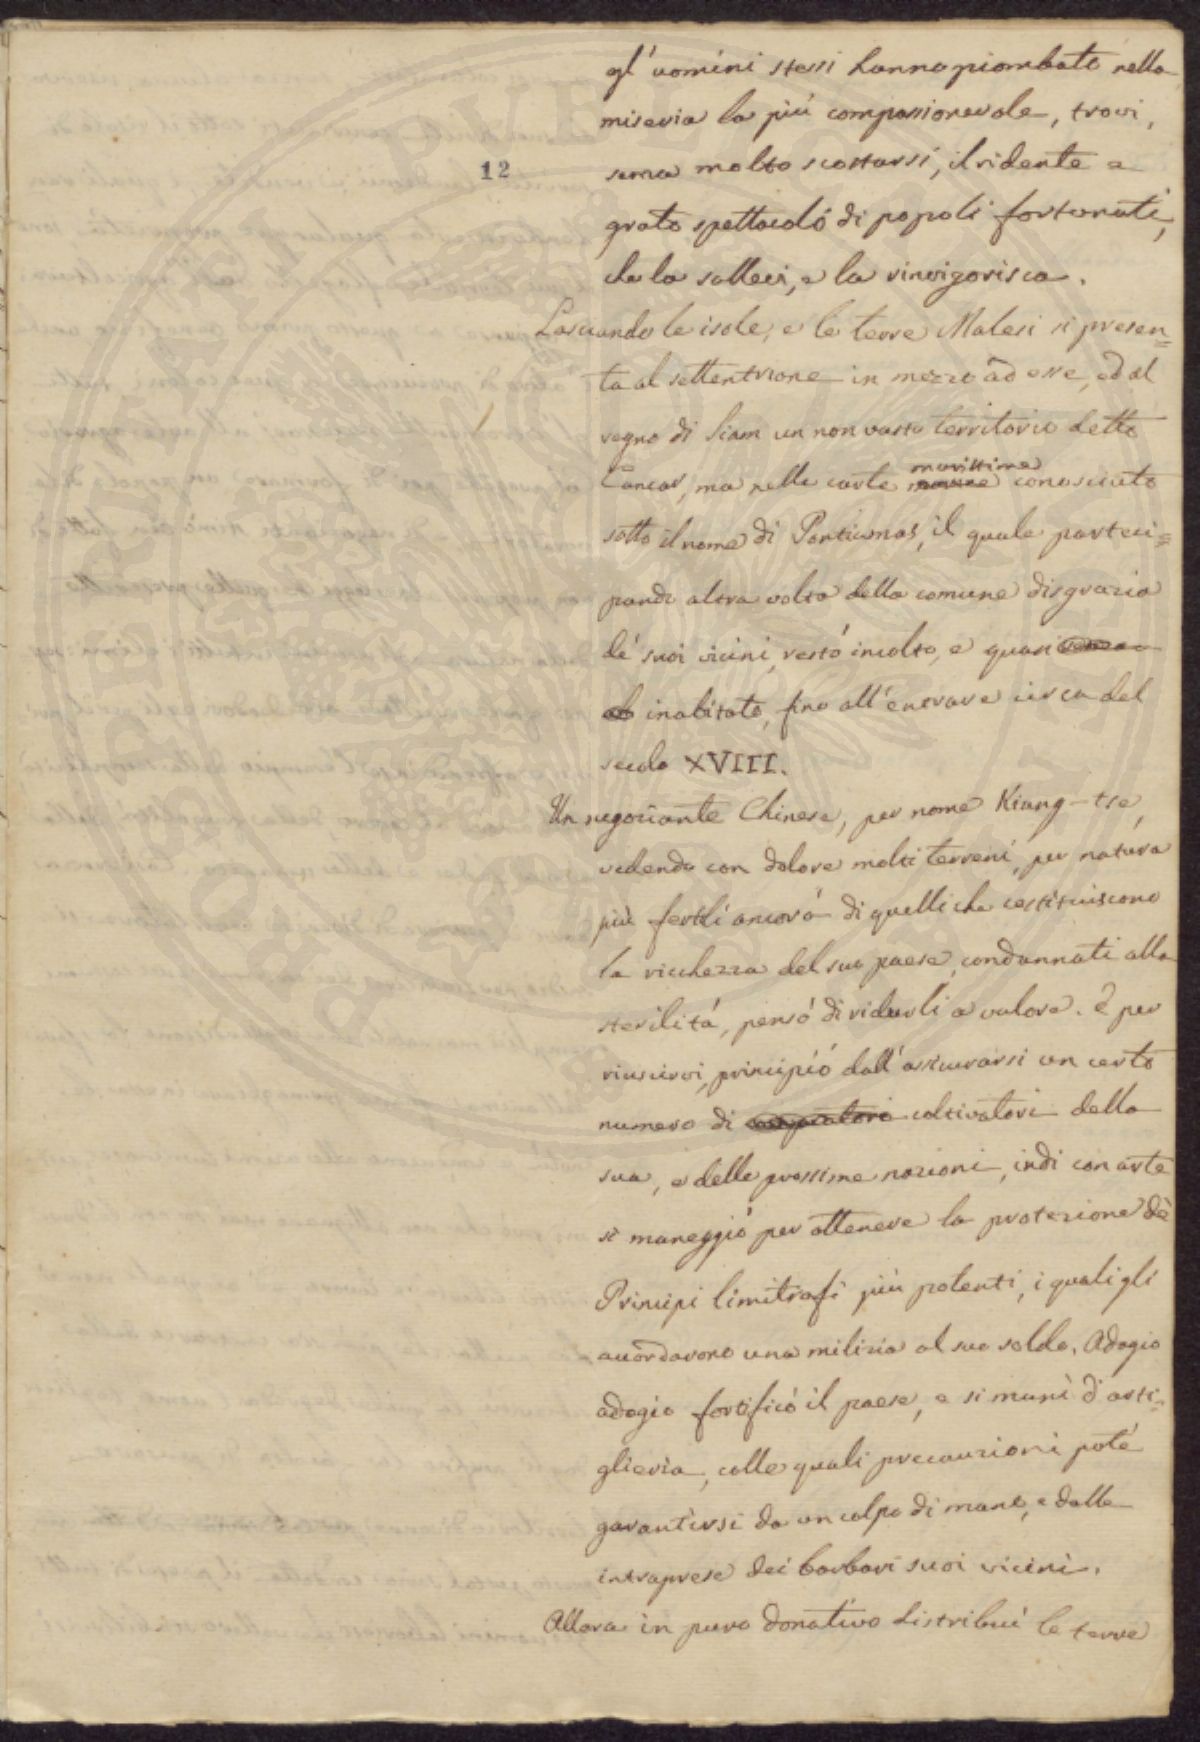 gl'uomini stessi hanno piombato nella
miseria la più compassionevole, trovi,
12
senza molto scostarsi, il ridente e
grato spettacolo di popoli fortunati,
che la sollevi, e la rinvigorisca.
Lasciando le isole, e le terre Malesi si presen=
ta al settentrione in mezzo ad esse, ed al
regno di Siam un non vasto territorio detto
marittime
Cancar, ma nelle carte marine conosciuto
sotto il nome di Ponticumas, il quale parteci=
pando altra volta della comune disgrazia
de' suoi vicini, restò incolto, e quasi
inabitato, fino all'entrare circa del
secolo XVIII.
Un negoziante Chinese, per nome Kiang-tse,
vedendo con dolore molti terreni, per natura
più fertili ancora di quelli che costituiscono
la ricchezza del suo paese, condannati alla
sterilità, pensò di ridurli a valore. E per
riuscirvi, principiò dall'assicurarsi un certo
numero di coltivatori della
sua, e delle prossime nazioni, indi con arte
si maneggiò per ottenere la protezione de'
Principi limitrofi più potenti, i quali gli
accordarono una milizia al suo soldo. Adagio
adagio fortificò il paese, e si munì d'arti=
glieria, colle quali precauzioni poté
garantirsi da un colpo di mano, e dalle
intraprese dei barbari suoi vicini.
Allora in puro donativo distribuì le terre